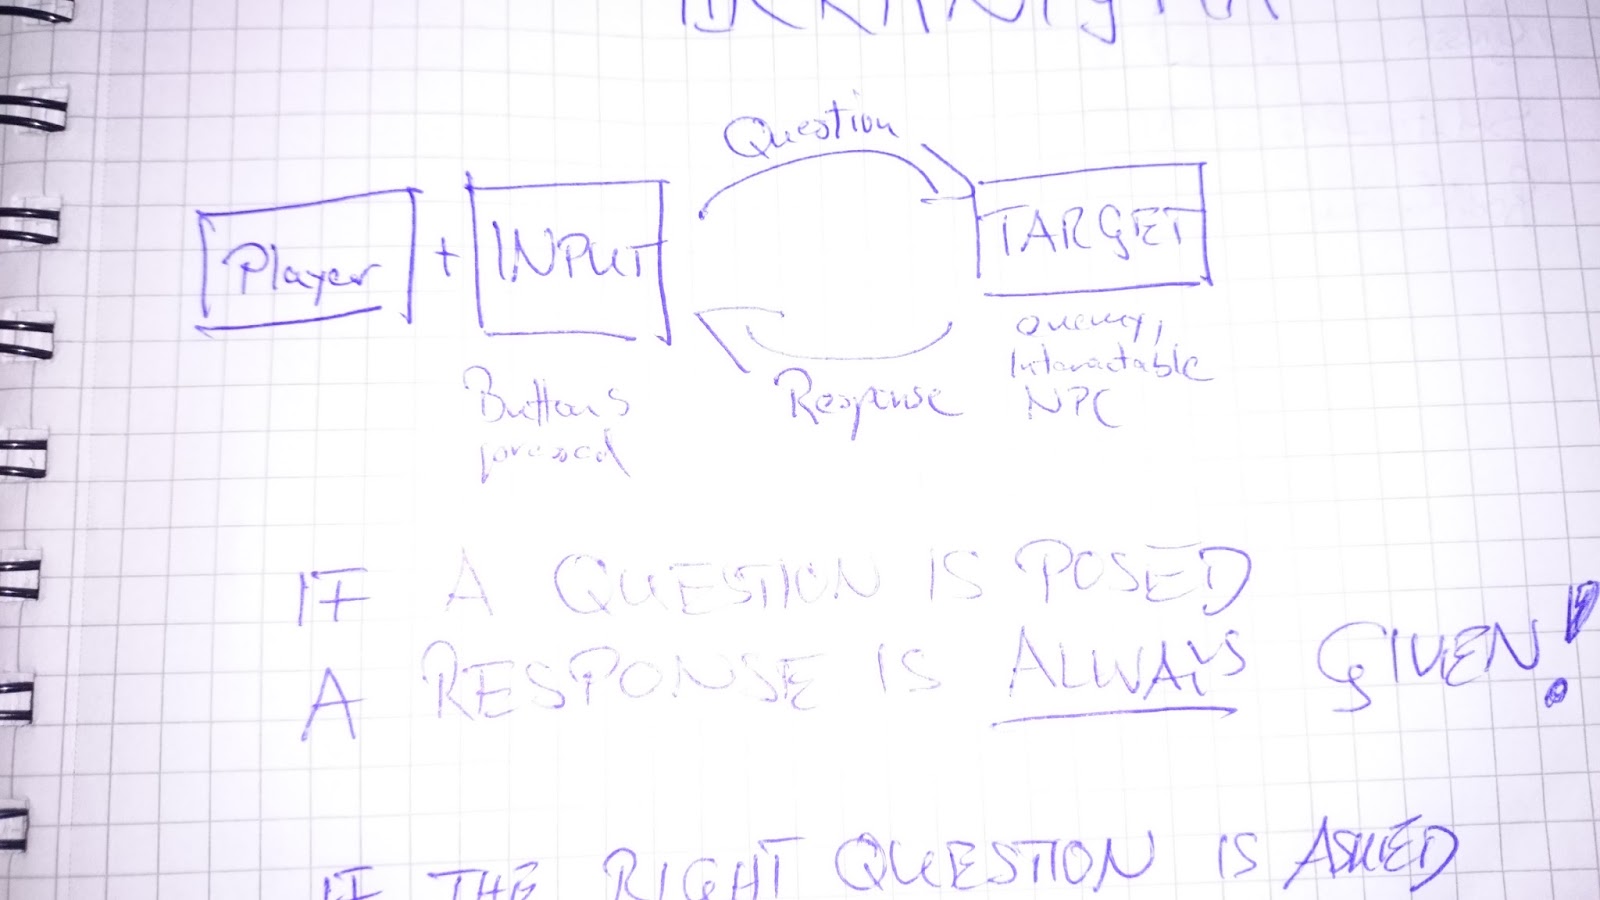 Question
Player + INPUT
TARGET
Buttons
pressed
Response
enemy,
Interactable
NPC
IF A QUESTION IS POSED
A RESPONSE IS ALWAYS GIVEN!
IF THE RIGHT QUESTION IS ASKED